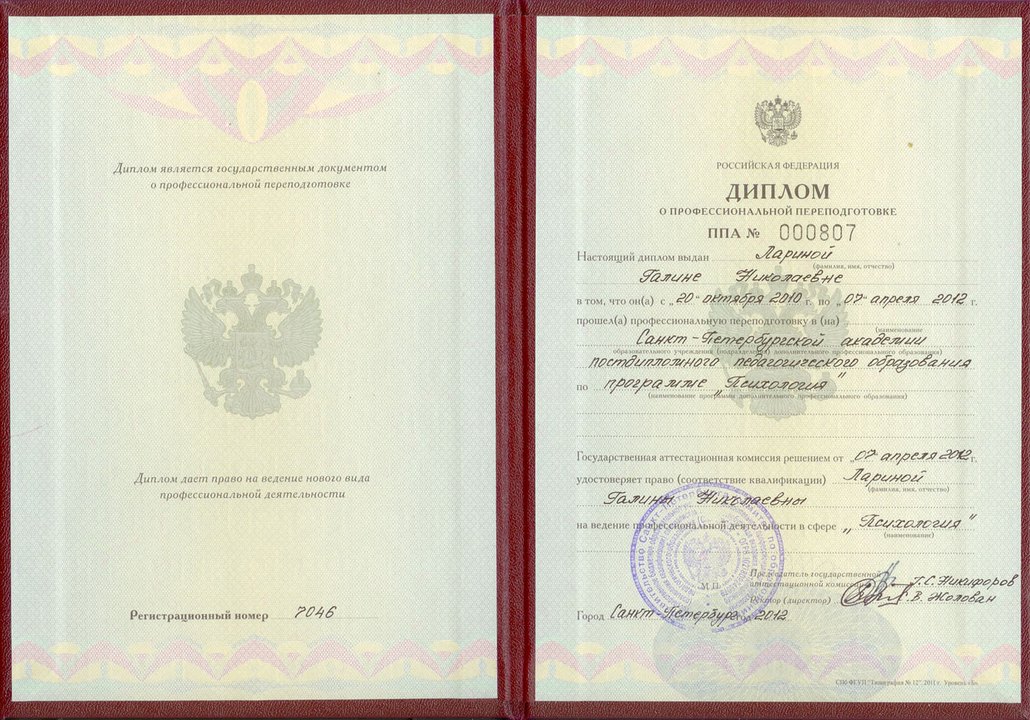 Диплом является государственным документом
о профессиональной переподготовке
Диплом дает право на ведение нового вида
профессиональной деятельности
Регистрационный номер 7046
РОССИЙСКАЯ ФЕДЕРАЦИЯ
ДИПЛОМ
О ПРОФЕССИОНАЛЬНОЙ ПЕРЕПОДГОТОВКЕ
ППА № 000807
Настоящий диплом выдан Лариной
(фамилия, имя, отчество)
Галине Николаевне
в том, что он(а) с „20" октября 2010 г. по „07" апреля 2012 г.
прошел(а) профессиональную переподготовку в (на)
(наименование
Санкт-Петербургской академии
образовательного учреждения (подразделения) дополнительного профессионального образования)
постдипломного педагогического образования
по программе „Психология"
(наименование программы дополнительного профессионального образования)
Государственная аттестационная комиссия решением от „07 апреля 2012г.
удостоверяет право (соответствие квалификации) Лариной
(фамилия, имя, отчество)
Галины Николаевны
на ведение профессиональной деятельности в сфере „Психология"
(наименование)
Председатель государственной
аттестационной комиссии Т.С. Никифоров
Ректор (директор) В. Жолован
М.П.
Город Санкт-Петербург 2012
СПб ФГУП "Типография № 12". 2011 г. Уровень «Б»